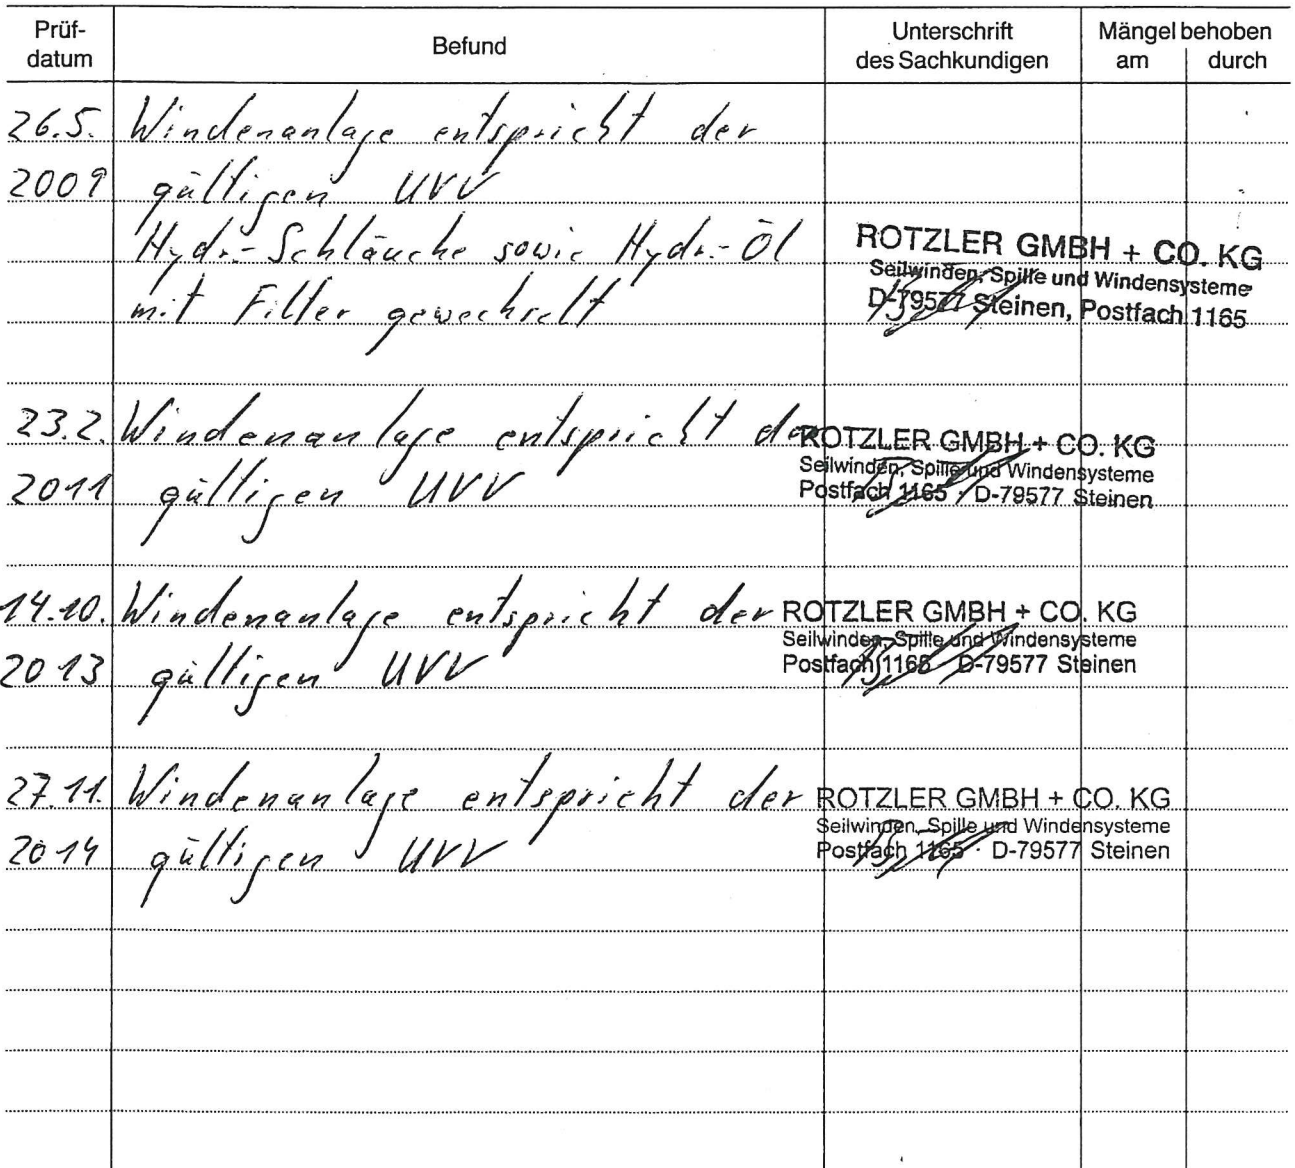 Prüf-
datum
Befund
Unterschrift
des Sachkundigen
Mängel behoben
am
durch
26.5. Windenanlage entspricht der
2009 gültigen UVV
Hydr.-Schläuche sowie Hydr.-Öl
mit Filter gewechselt
ROTZLER GMBH + CO. KG
Seilwinden, Spille und Windensysteme
D-79577 Steinen, Postfach 1165
23.2. Windenanlage entspricht der
2011 gültigen UVV
ROTZLER GMBH + CO. KG
Seilwinden, Spille und Windensysteme
Postfach 1165 · D-79577 Steinen
14.10. Windenanlage entspricht der
2013 gültigen UVV
ROTZLER GMBH + CO. KG
Seilwinden, Spille und Windensysteme
Postfach 1165 · D-79577 Steinen
27.11. Windenanlage entspricht der
2014 gültigen UVV
ROTZLER GMBH + CO. KG
Seilwinden, Spille und Windensysteme
Postfach 1165 · D-79577 Steinen